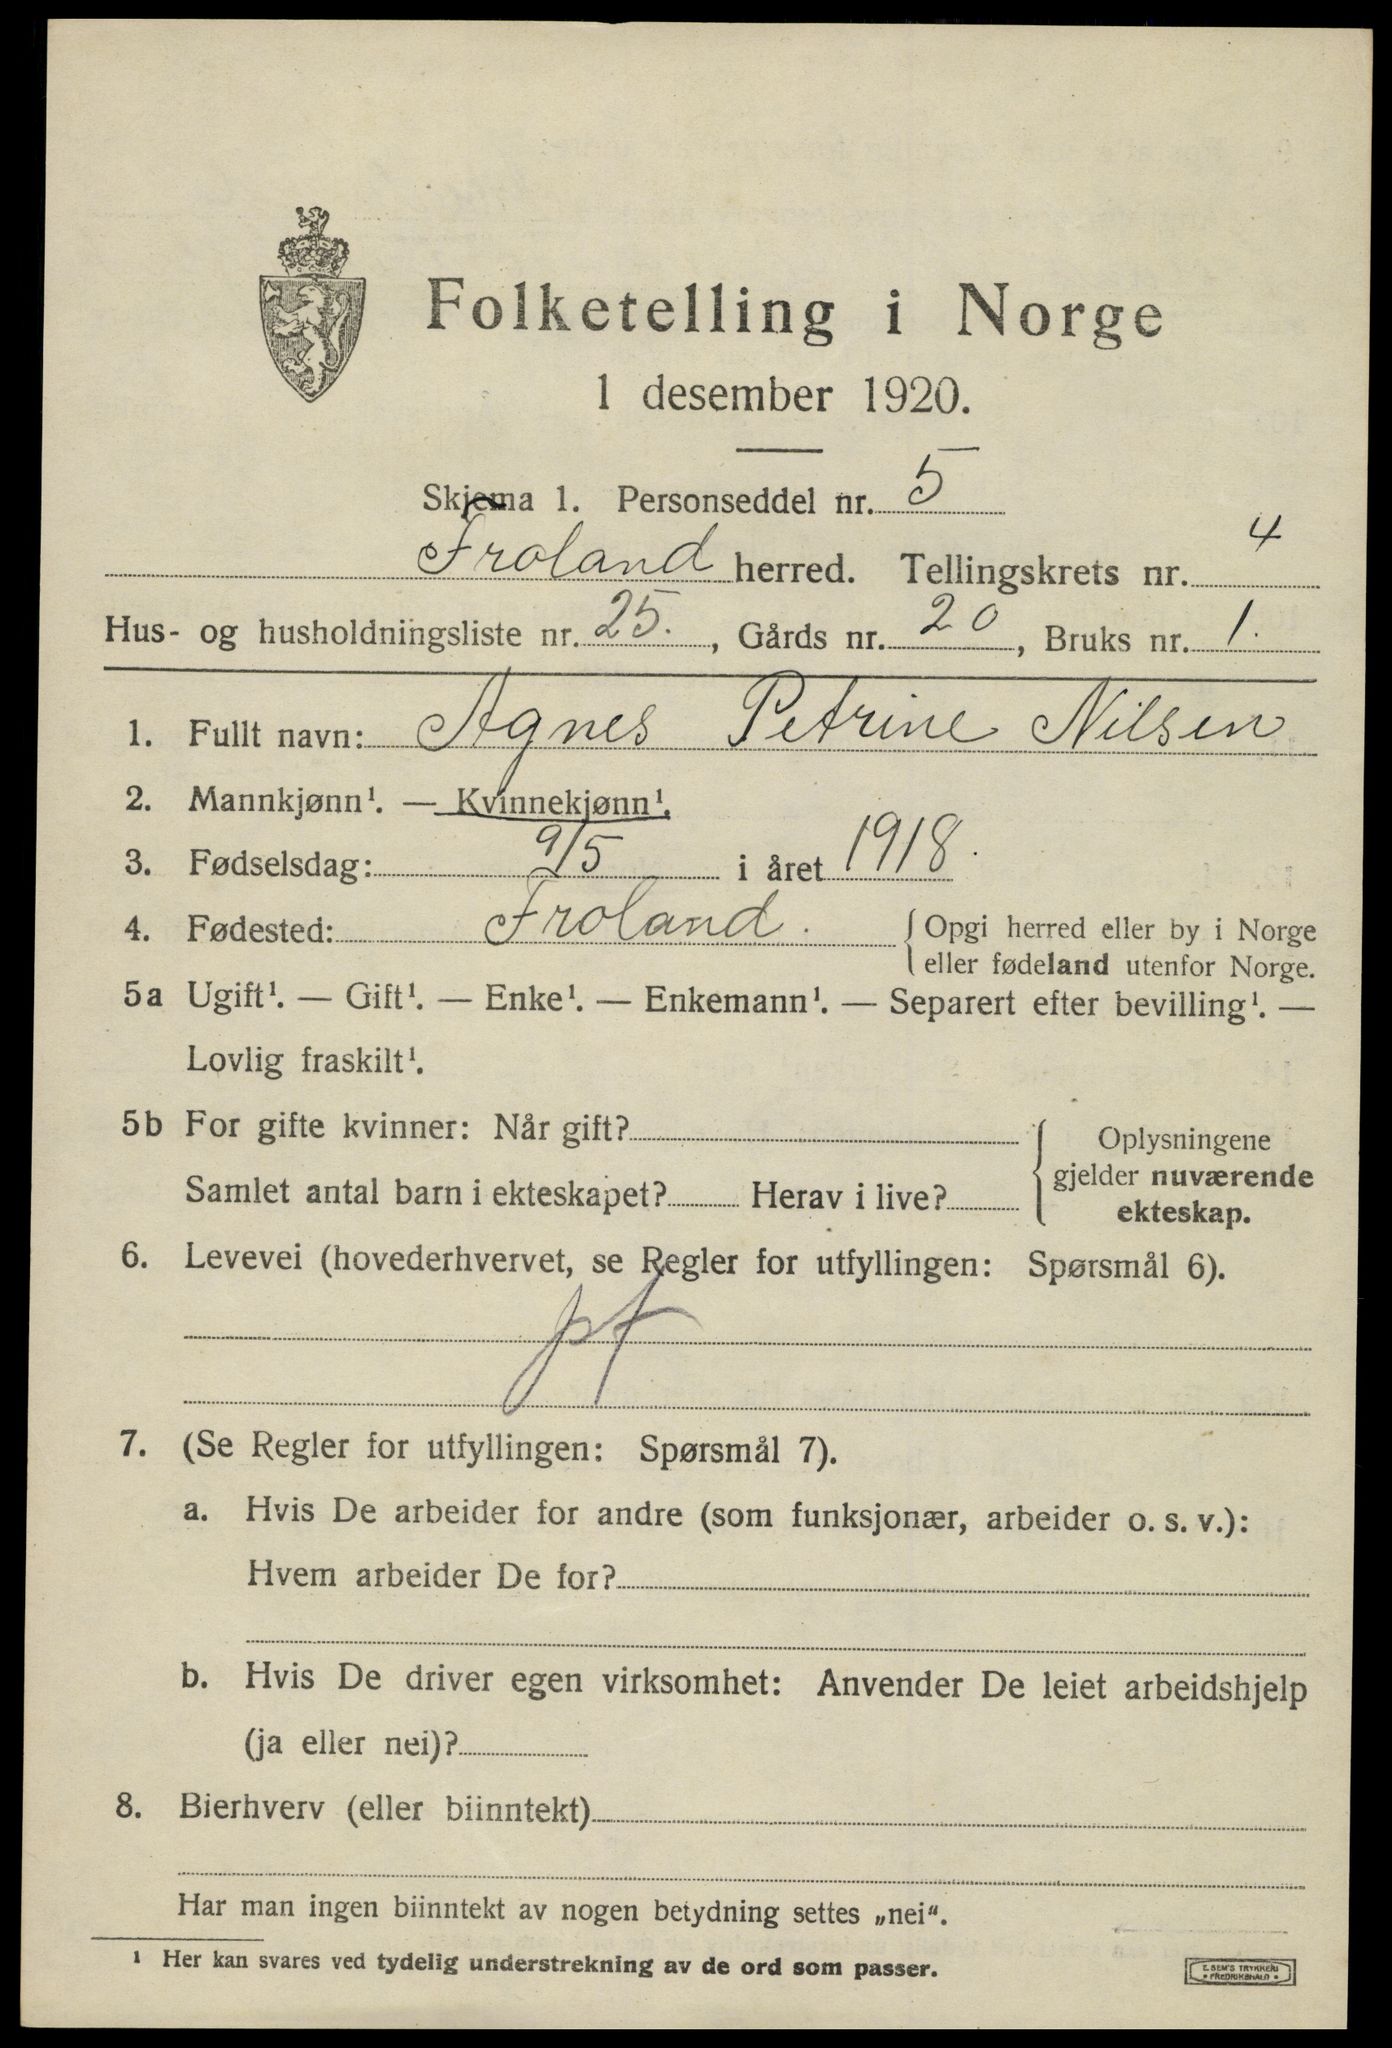 Folketelling i Norge
1 desember 1920.
Skjema 1. Personseddel nr. 5
Froland herred. Tellingskrets nr. 4
Hus- og husholdningsliste nr. 25., Gårds nr. 20, Bruks nr. 1.
1. Fullt navn: Agnes Petrine Nilsen
2. Mannkjønn¹. — Kvinnekjønn¹.
3. Fødselsdag: 9/5 i året 1918.
4. Fødested: Froland. { Opgi herred eller by i Norge
eller fødeland utenfor Norge.
5a Ugift¹. — Gift¹. — Enke¹. — Enkemann¹. — Separert efter bevilling¹. —
Lovlig fraskilt¹.
5b For gifte kvinner: Når gift?
Samlet antal barn i ekteskapet? Herav i live?
{ Oplysningene
gjelder nuværende
ekteskap.
6. Levevei (hovederhvervet, se Regler for utfyllingen: Spørsmål 6).
pf
7. (Se Regler for utfyllingen: Spørsmål 7).
a. Hvis De arbeider for andre (som funksjonær, arbeider o. s. v.):
Hvem arbeider De for?
b. Hvis De driver egen virksomhet: Anvender De leiet arbeidshjelp
(ja eller nei)?
8. Bierhverv (eller biinntekt)
Har man ingen biinntekt av nogen betydning settes „nei“.
¹ Her kan svares ved tydelig understrekning av de ord som passer.
E. SEM'S TRYKKERI
FREDRIKSHALD